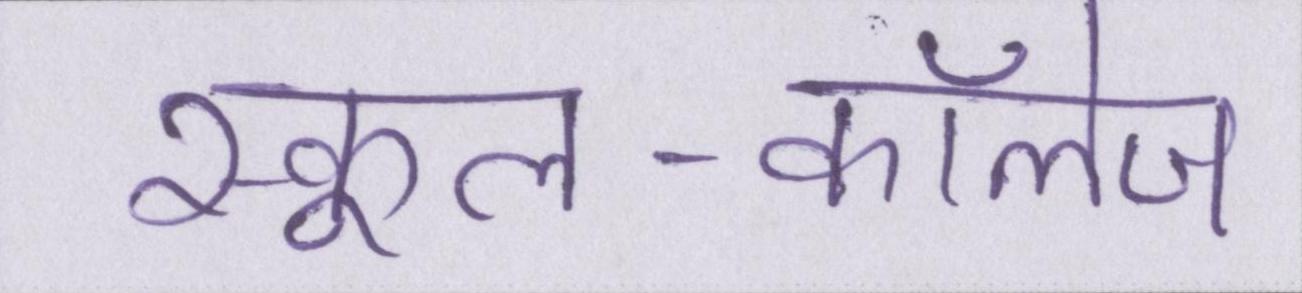 स्कूल-कॉलेज